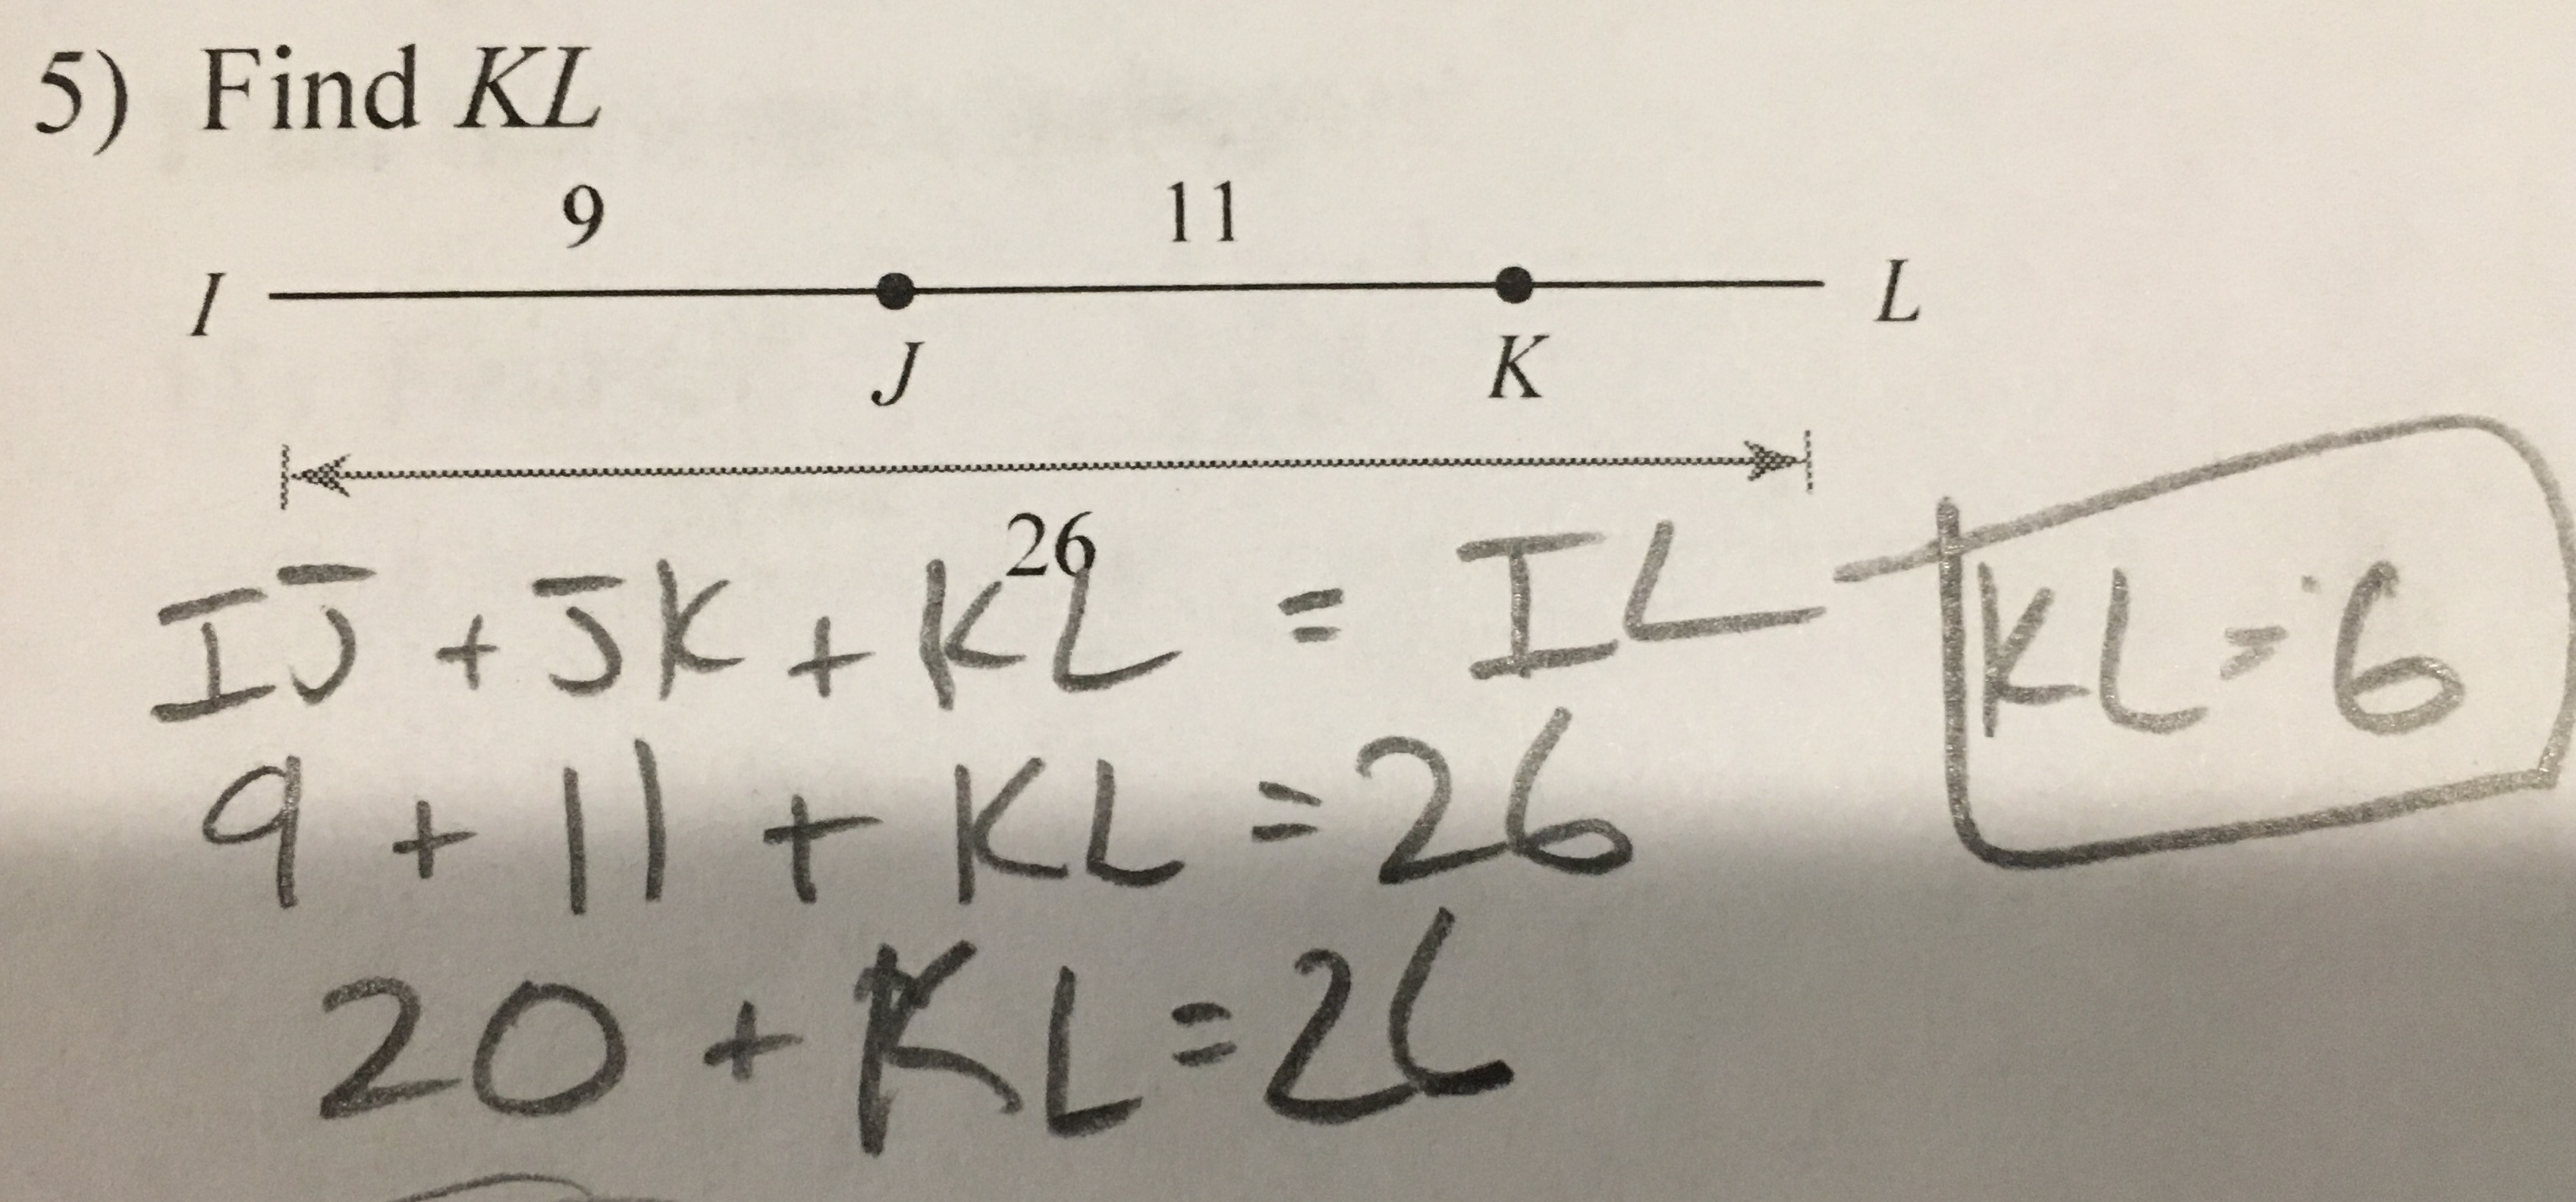 5) Find KL
9 11
I L
J K
26
IJ + JK + KL = IL
KL = 6
9 + 11 + KL = 26
20 + KL = 26